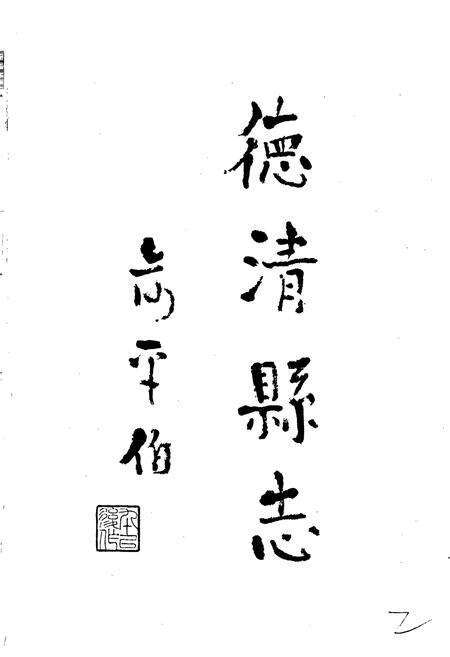 德清縣志
俞平伯